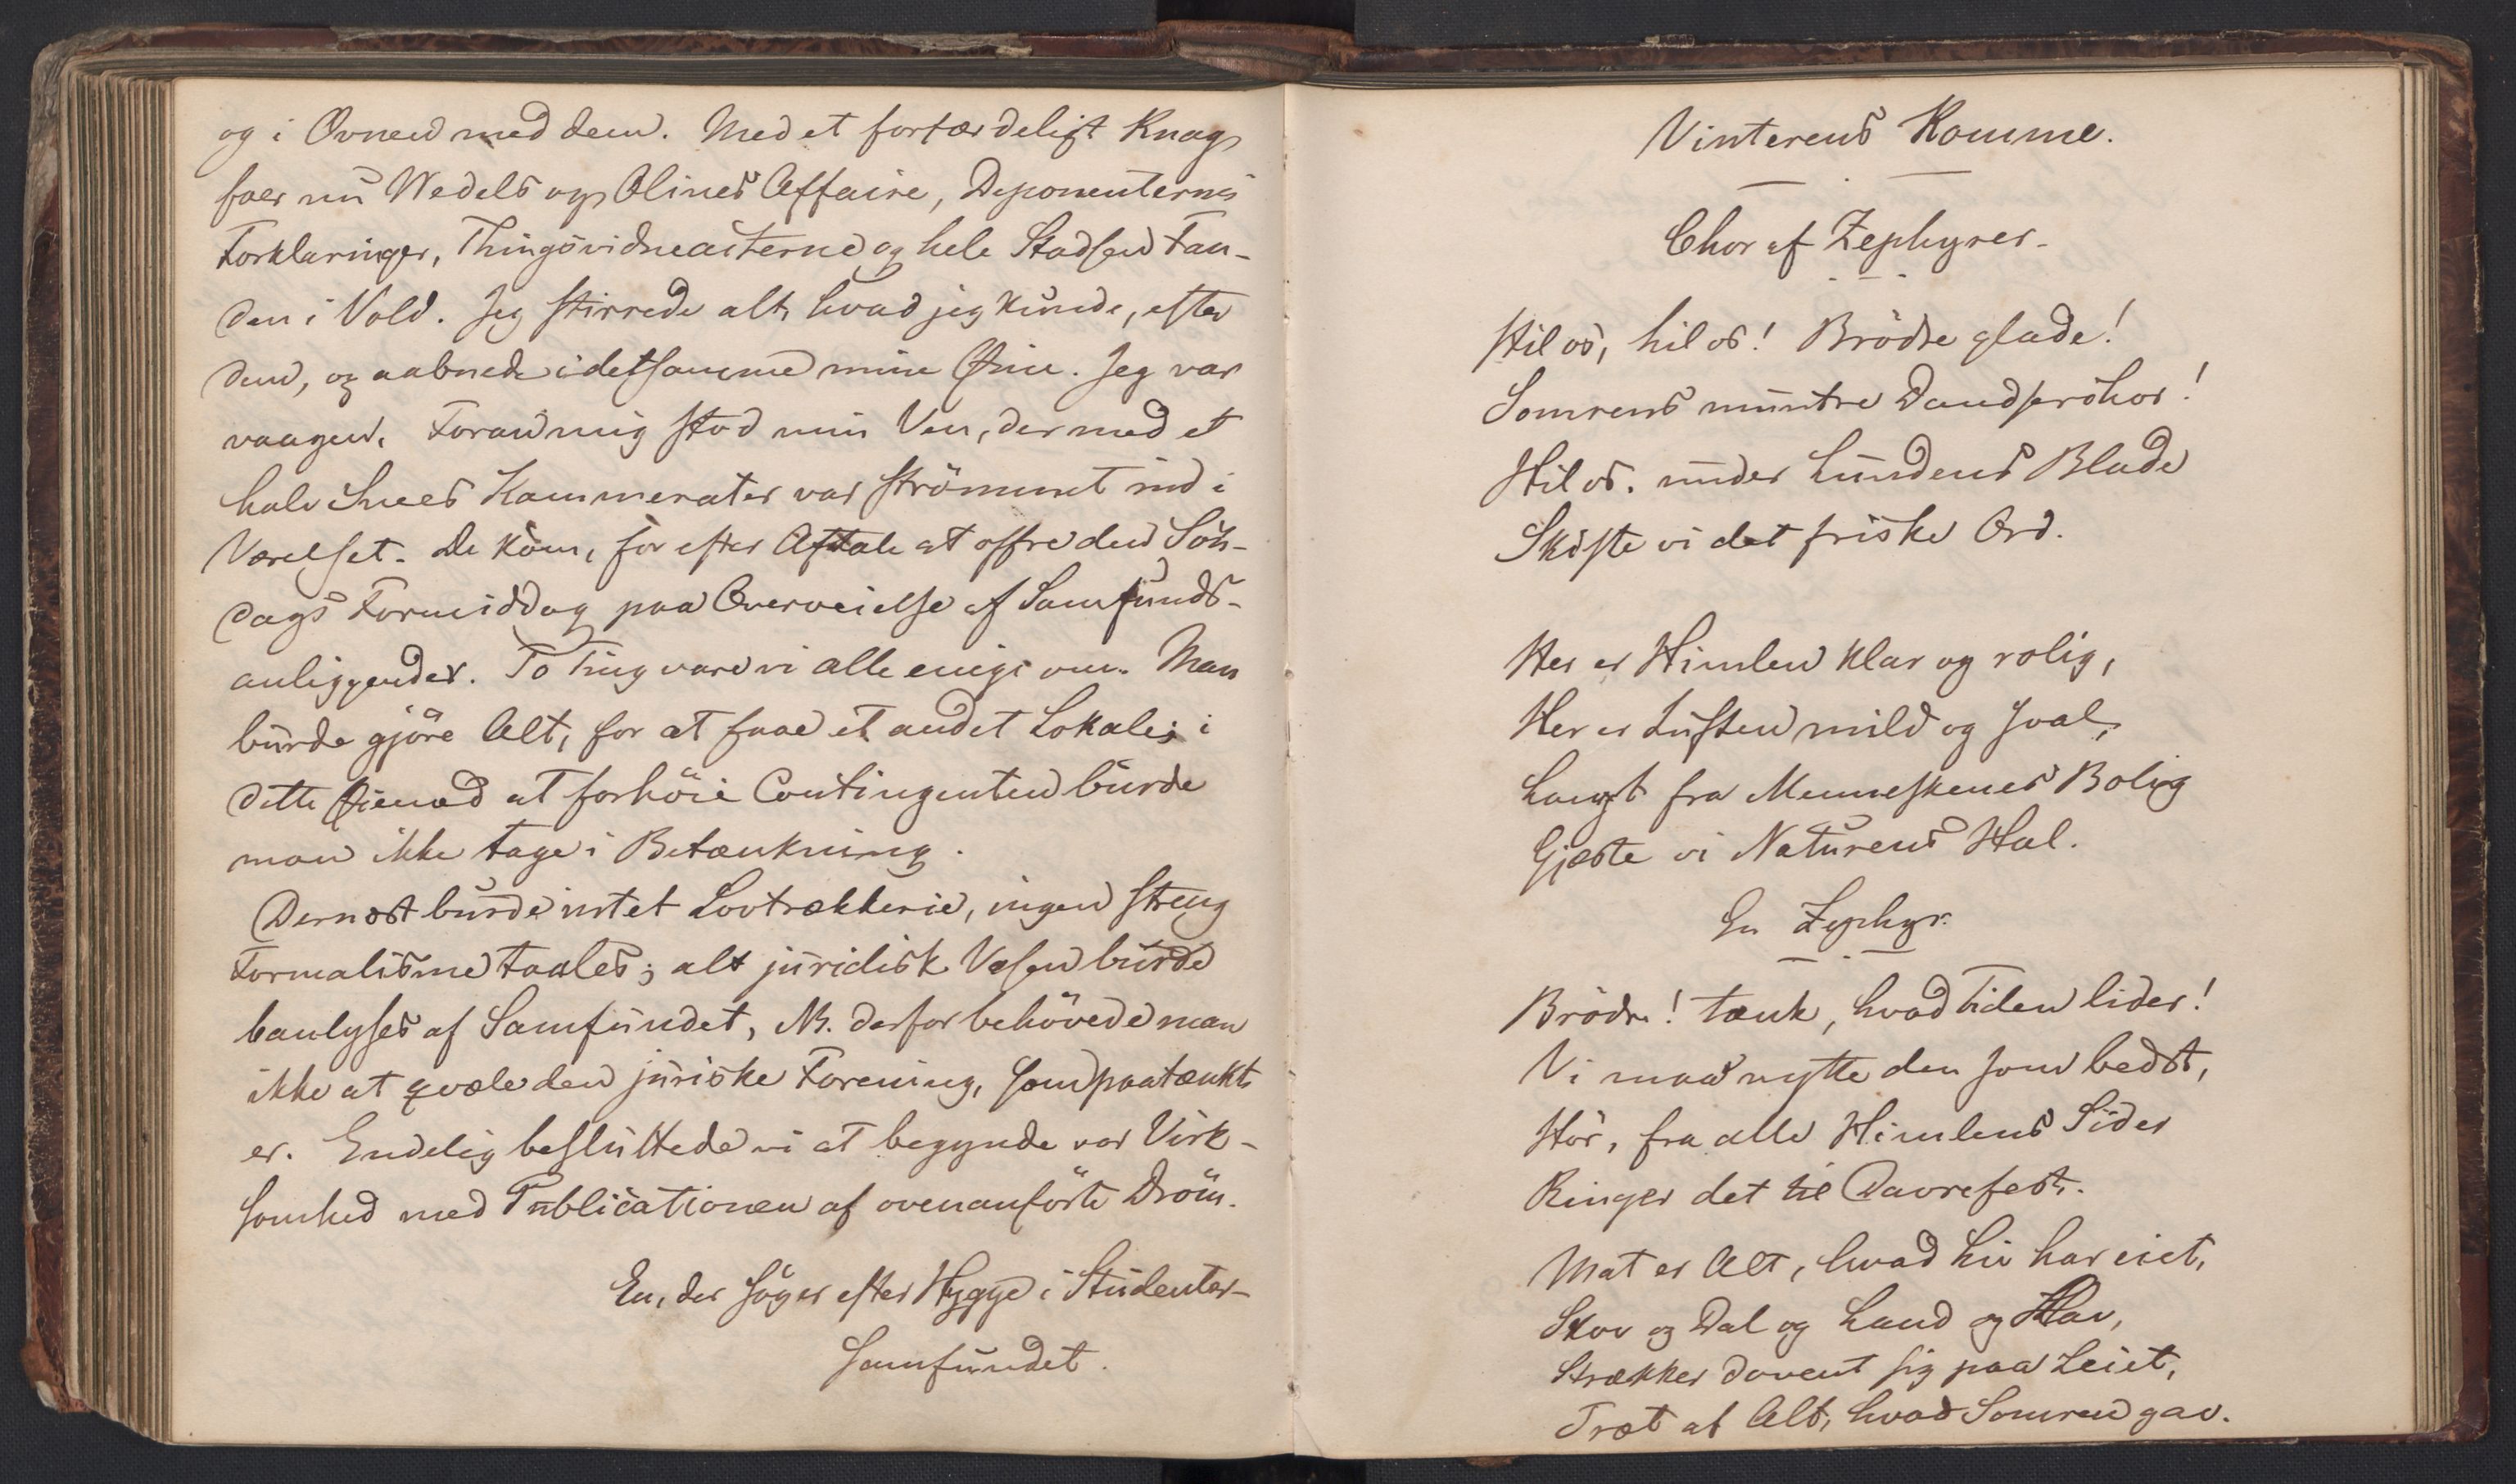 og i Ovnen med dem. Med et forfærdeligt Knag
foer nu Wedels og Olines Affaire, Deponenternes
Forklaringer, Thingsvidneacterne og hele Stadsen Fan-
den i Vold. Jeg stirrede alt, hvad jeg kunde, efter
dem, og aabnede i detsamme mine Øine. Jeg var
vaagen. Foran mig stod min Ven, der med et
halv Snees Kammerater var strömmet ind i
Værelset. De kom, for efter Aftale at offre den Sön-
dags Formiddag paa Overveielse af Samfunds-
anliggender. To Ting vare vi alle enige om. Man
burde gjöre Alt, for at faae et andet Lokale; i
dette Øiemed at forhöie Contingenten burde
man ikke tage i Betænkning.
Dernæst burde intet Lovtrækkerie, ingen streng
Formalisme taales; alt juridisk Væsen burde
banlyses af Samfundet, NB. derfor behövede man
ikke at qvæle den juriske Forening, som paatænkt
er. Endelig besluttede vi at begynde vor Virk-
somhed med Publicationen af ovenanförte Dröm.
En, der söger efter Hygge i Studenter-
samfundet.
Vinterens Komme.
Chor af Zephyrer.
Hil os, hil os! Brödre glade!
Somrens muntre Dandserchor!
Hil os. under Lundens Blade
Skifte vi det friske Ord.
Her er Himlen klar og rolig,
Her er Luften mild og sval,
Langt fra Menneskenes Bolig
Gjæste vi Naturens Hal.
En Zephyr.
Brödre! tænk, hvad Tiden lider!
Vi maa nytte den som bedst,
Hör, fra alle Himlens Sider
Ringer det til Davrefest.
Mat er Alt, hvad Liv har eiet,
Skov og Dal og Land og Hav,
Strækker dovent sig paa Leiet,
Træt af Alt, hvad Somren gav.